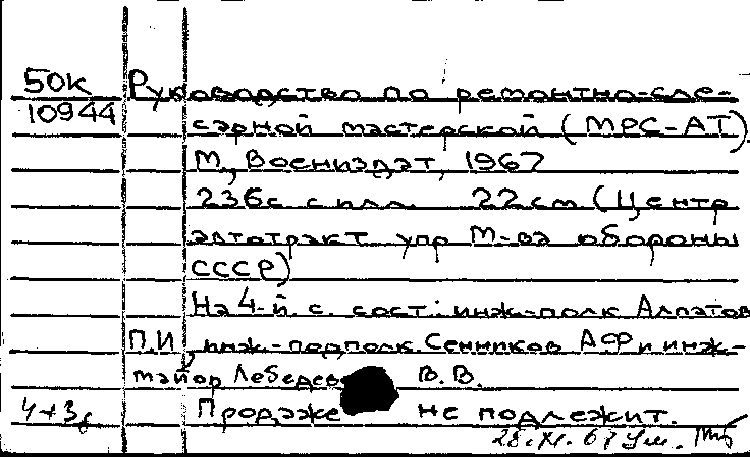 50к Руководство по ремонтно-сле-
10944 сарной мастерской (МРС-АТ).
М., Воениздат, 1967
236с с илл. 22см (Центр
автотракт упр М-ва обороны
СССР)
На 4-й с. сост: инж-полк Алпатов
П.И, инж-подполк. Сенников А.Ф и инж-
майор Лебедев В.В.
4+3 Продаже не подлежит.
28.XI.67